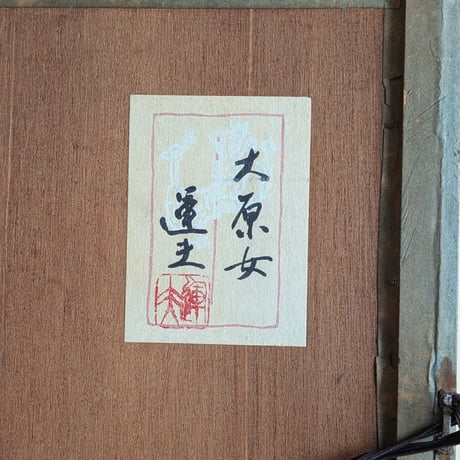 大原女
蓮土